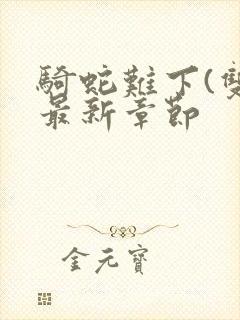 騎蛇難下(雙
最新章節
金元寶